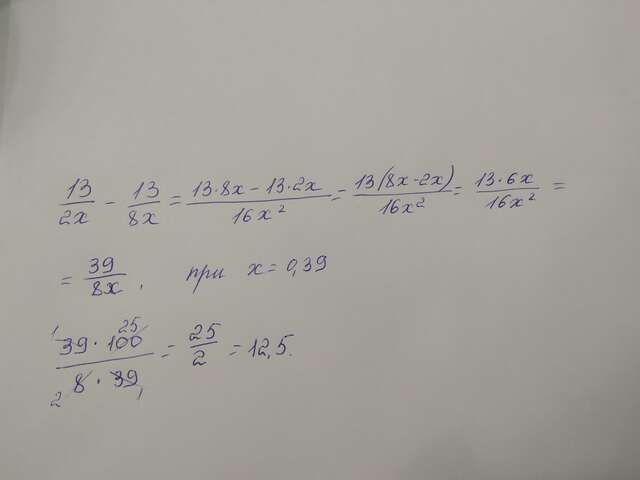 13/2x - 13/8x = (13·8x - 13·2x)/16x² = 13(8x-2x)/16x² = 13·6x/16x² =
= 39/8x, при x = 0,39
1 39·100 25 / 2 8·39 1 = 25/2 = 12,5.